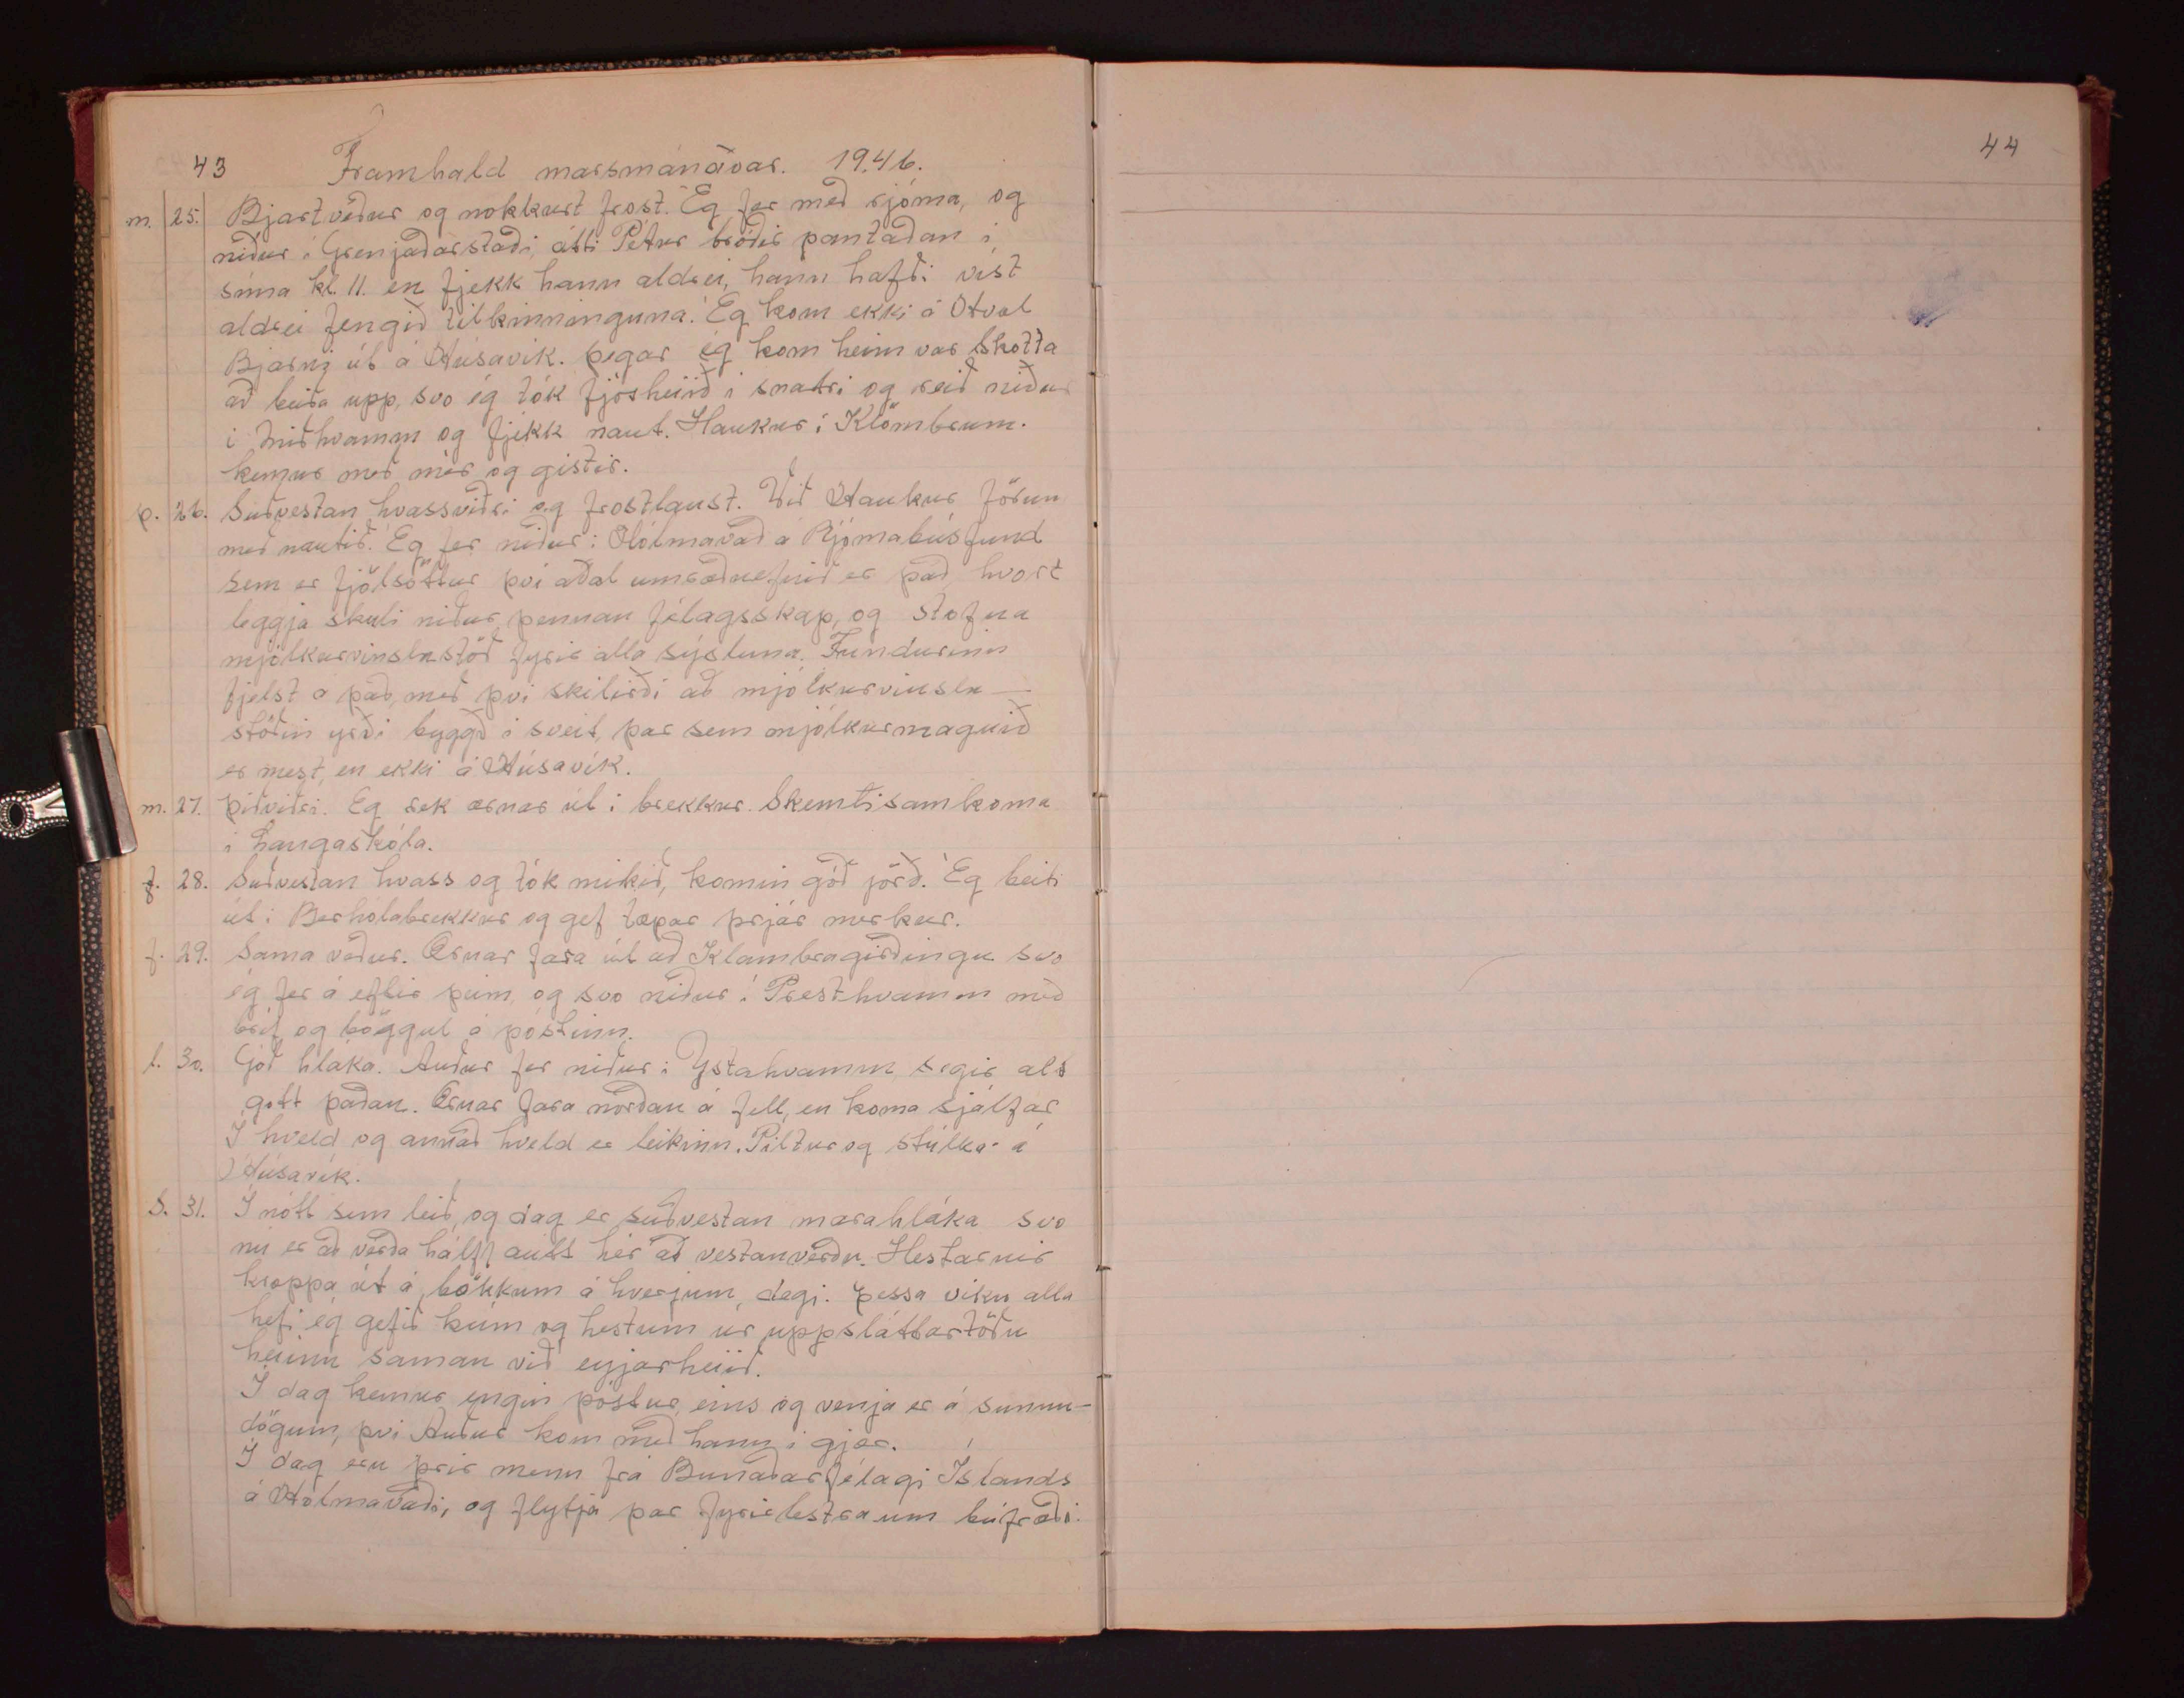 43 Framhald marsmánaðar. 1946.
m. 25. Bjartveður og nokkurt frost. Ég fer með rjóma, og
niður í Grenjaðarstaði, átti Pétur bróðir pantaðan í
síma kl. 11. en fjekk hann aldrei, hann hafði víst
aldrei fengið tilkinninguna. Ég kom ekki á
Bjarnj út á Húsavík. þegar ég kom heim var Skotta
að beiða upp, svo ég tók fjósheiið í snatri og reið niður
í Miðhvamm og fjekk naut. Haukur í Klömbrum.
kemur með mér og gistir.
þ. 26. Suðvestan hvassviðri og frostlaust. Við Haukur förum
með nautið. Ég fer niður í Hólmavað á Rjómabúsfund
sem er fjölsóttur því aðal umræðuefnið er það hvort
leggja skuli niður þennan félagsskap, og stofna
mjólkurvinslustöð fyrir alla sýsluna. Fundurinn
fjelst á það, með því skilirði að mjólkurvinslu-
stöðin yrði byggð í sveit, þar sem mjólkurmagnið
er mest, en ekki á Húsavík.
m. 27. þíðviðri. Ég rek ærnar út í brekkur. Skemtisamkoma
í Laugaskóla.
f. 28. Suðvestan hvass og tók mikið, komin góð jörð. Ég beiti
út í Berhólabrekkur og gef tæpar þrjár merkur.
f. 29. Sama veður. Ærnar fara út að Klambragirðingu svo
ég fer á eftir þeim, og svo niður í Presthvamm með
bréf og böggul á póstinn.
l. 30. Góð hláka. Auður fer niður í Ystahvamm, segir alt
gott þaðan. Ærnar fara norðan á fell, en koma sjálfar
Í hveld og annað hveld er leikinn. Piltur og stúlka á
Húsavík.
S. 31. Í nótt sem leið, og dag er suðvestan marahláka svo
nú er að verða hálf autt hér að vestanverðu. Hestarnir
kroppa út á bökkum á hverjum degi. þessa viku alla
hefi ég gefið kúm og hestum úr uppsláttartöðu
heiinu saman við eyjarheiið.
Í dag kemur engin póstur, eins og venja er á sunnu-
dögum, því Auður kom með hann í gjær.
Í dag eru þrír menn frá Bunaðarfélagi Íslands
á Hólmavaði, og flytja þar fyrirlestra um búfræði.
44